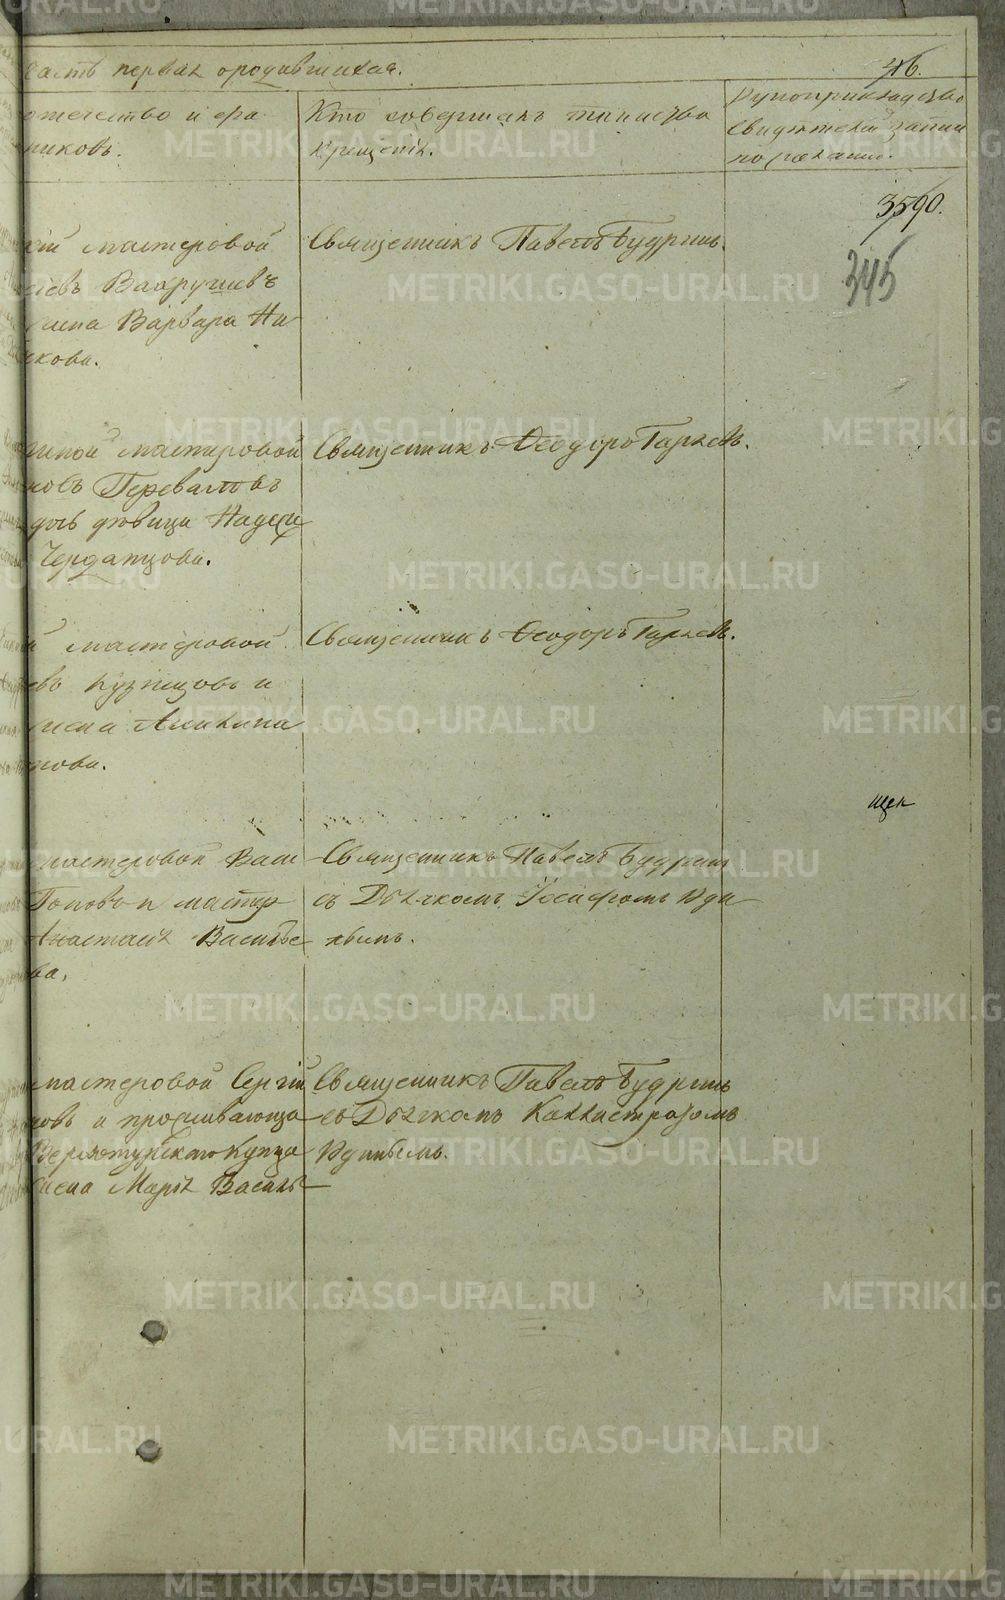 METRIKI.GASO-URAL.RU
часть первая о родившихся.
46.
отечество и фа
никовъ.
Кто совершалъ таинство
крещенія.
Рукоприкладство
свидѣтелей записи
по желанію.
3590.
345
кій мастеровой
евъ Вахрушевъ
жена Варвара Ни
кова.
Священникъ Павелъ Будринъ.
мастеровой
новъ Переваловъ
дочь дѣвица Надеж
Черданцова.
Священникъ Феодоръ Гаряевъ.
й мастеровой
евъ Кузнецовъ и
жена
кова.
Священникъ Феодоръ Гаряевъ.
мастеровой Васи
Поповъ и мастер
Анастасія Василье
ва,
Священникъ Павелъ Будринъ
съ Дьячкомъ Іосифомъ Уди
мастеровой Сергій
новъ и проживающа
Верхотурскаго Купца
жена Марія Василь
Священникъ Павелъ Будринъ
съ Дьячкомъ Каллистратомъ